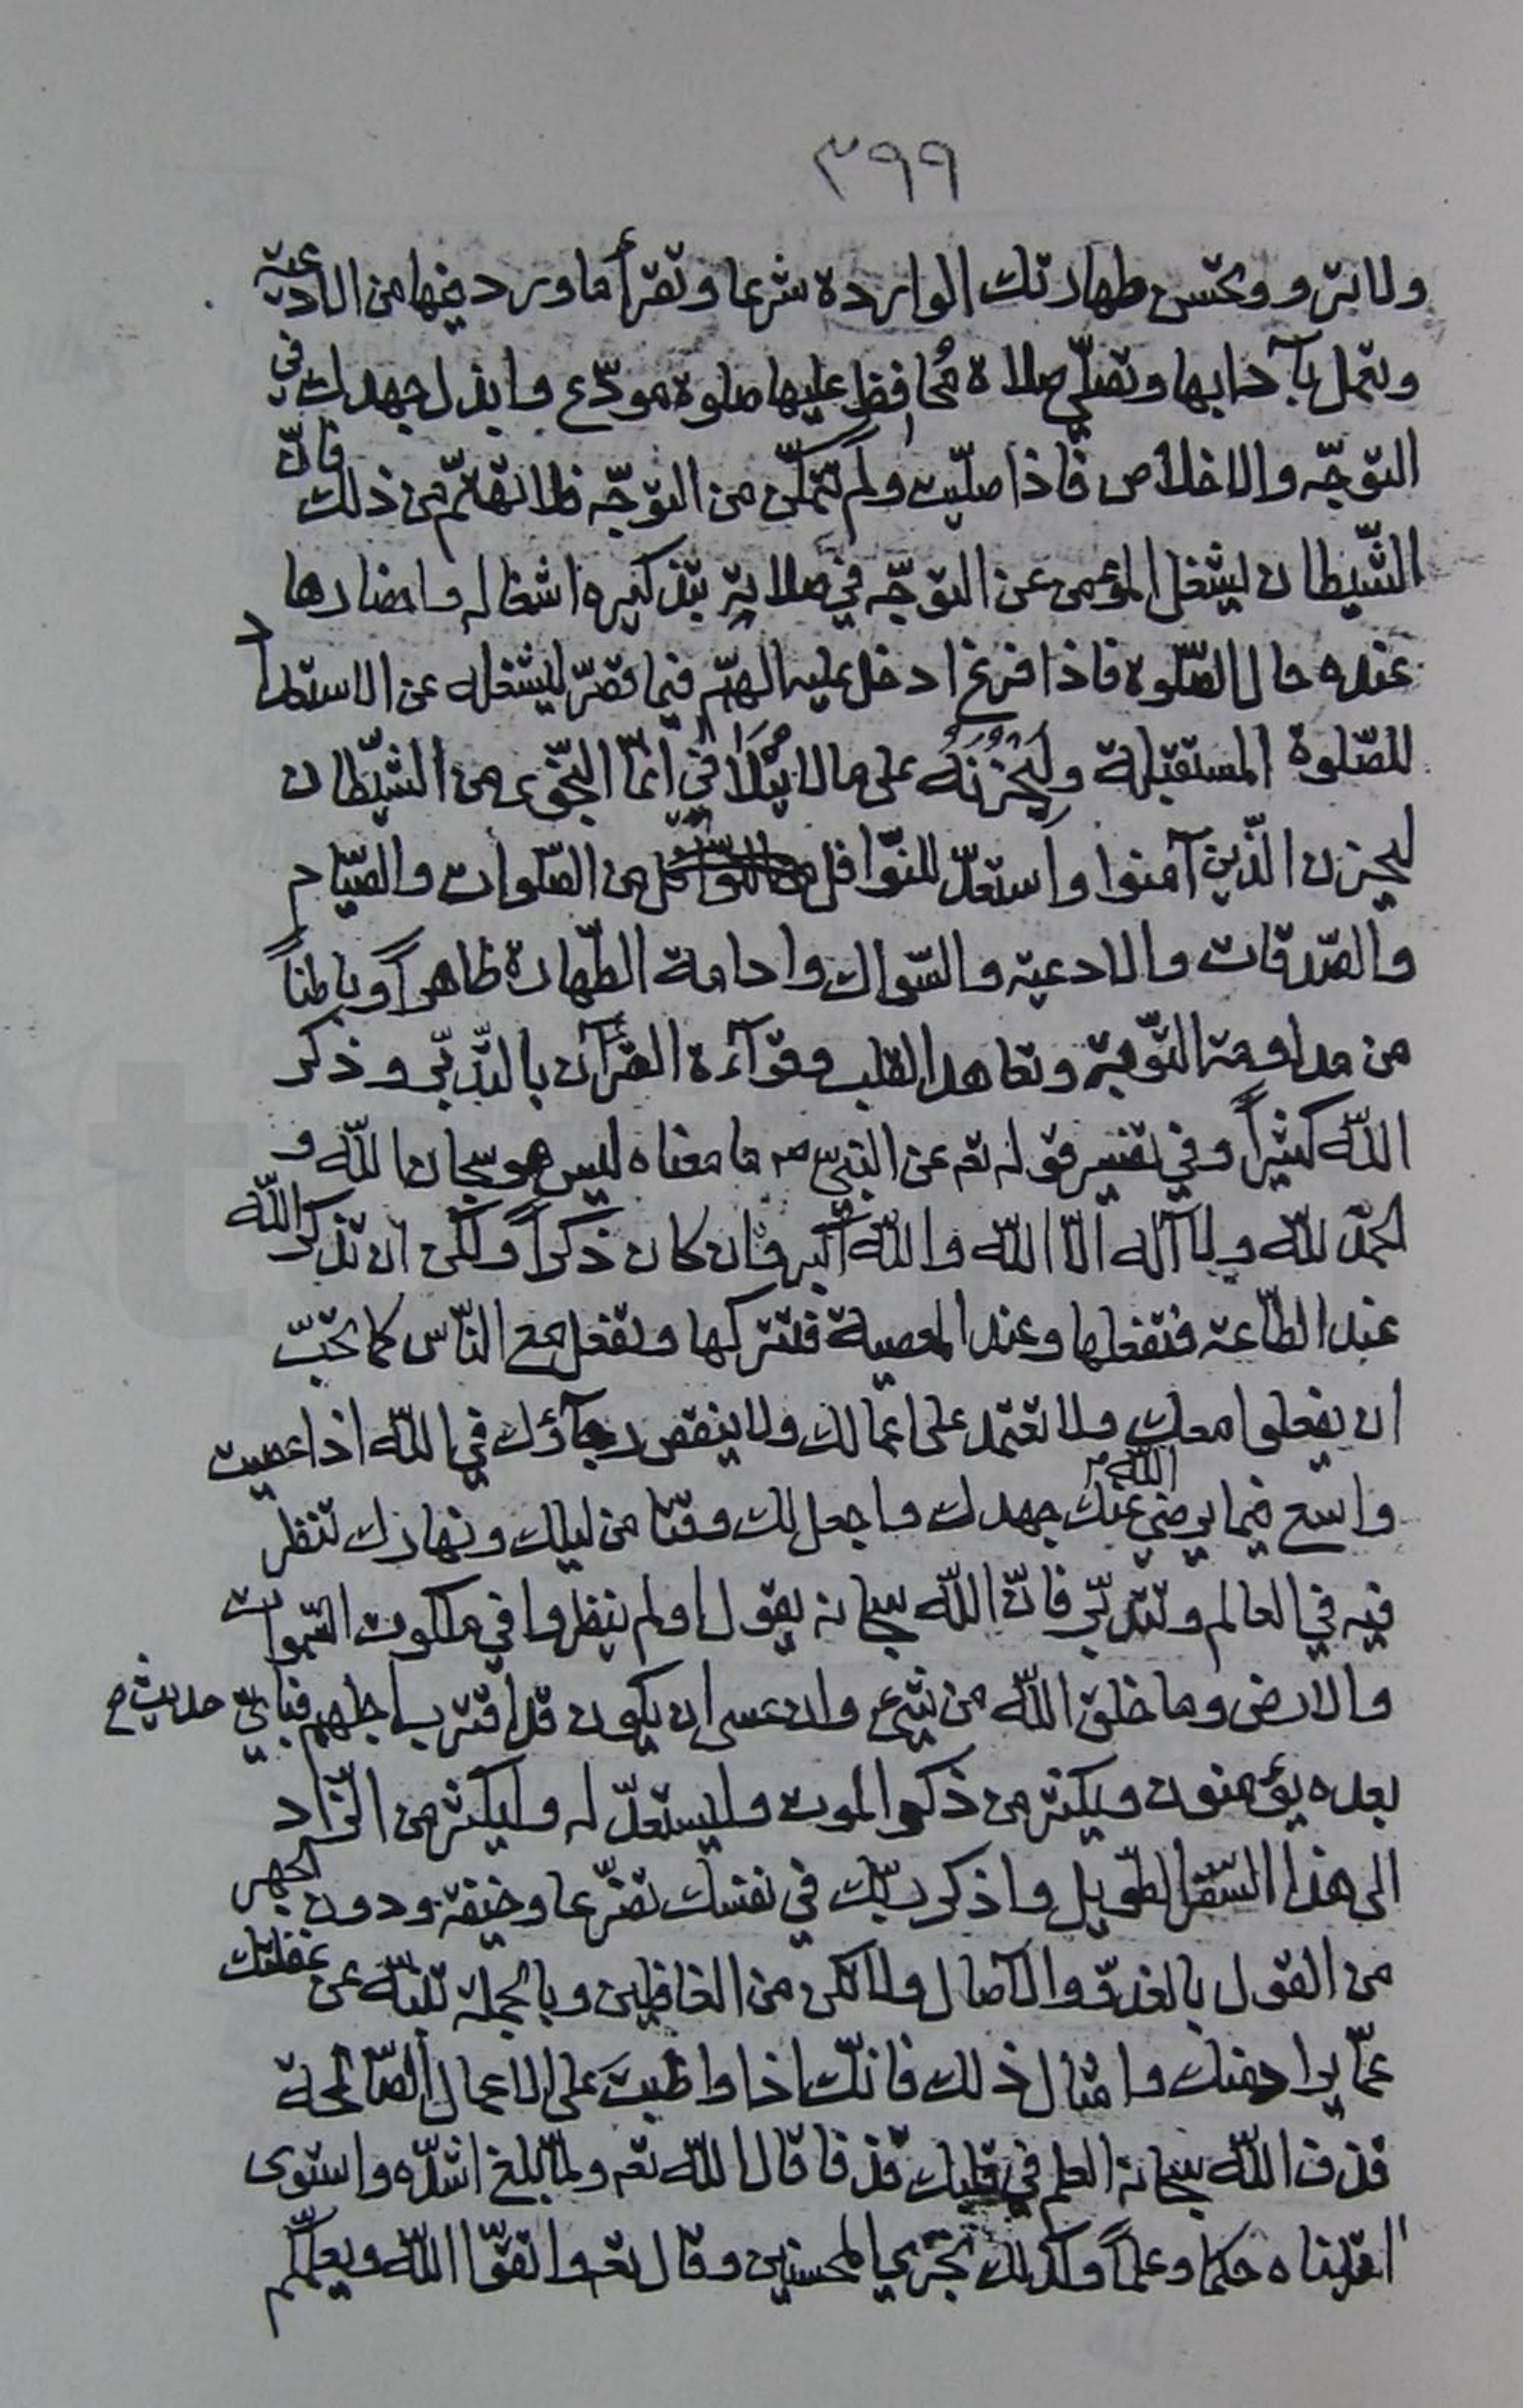 ٣٩٩
ولابتر ووتحسن طهارتك الواردة شرعا وتقرأ ما ورد فيها من الادعية
وتعمل بآدابها وتصلّي صلاة مُحافظ عليها صلوة مودّع وابذل جهدك في
التوجّه والاخلاص فاذا صلّيت ولم تتمكّن من التوجّه فلا تهتمّ من ذلك فانّ
الشّيطان ليشغل المؤمن عن التوجّه في صلاته بتذكيره اشغاله واحضارها
عنده حال الصّلوة فاذا فرغ ادخل عليه الهمّ فيما قصّر ليشغله عن الاستعداد
للصّلوة المستقبلة وليُحْزِنَهُ على ما لا يُتَلَافى انّما النّجوى من الشّيطان
ليحزن الّذين آمنوا واستعدّ للنّوافل من الصّلوات والصّيام
والصّدقات والادعية والسّواك وادامة الطّهارة ظاهراً وباطناً
من مداومة التّوبة وتعاهد القلب وقرآءة القرآن بالتّدبّر وذكر
اللّه كثيراً وفي تفسير قوله تعه عن النبيّ صه ما معناه ليس هو سبحان اللّه و
الحمد للّه ولا آله الّا اللّه واللّه اكبر وان كان ذكراً ولكن ان تذكر اللّه
عند الطّاعة فتفعلها وعند المعصية فتتركها وتفعل مع النّاس كما تحبّ
ان يفعلوا معك ولا تعتمد على اعمالك ولا ينقص رجآؤك في اللّه اذا عصيت
واسع فيما يرضي اللّه عنك جهدك واجعل لك وقتا من ليلك ونهارك تنظر
فيه في العالم وتتدبّر فانّ اللّه سبحانه يقول اولم ينظروا في ملكوت السّموات
والارض وما خلق اللّه من شيء وان عسى ان يكون قد اقترب اجلهم فبايّ حديث م
بعده يؤمنون ويكثر من ذكر الموت وليستعدّ له وليكثر من الزّاد
الى هذا السّفر الطّويل واذكر ربّك في نفسك تضرّعا وخيفة ودون الجهر
من القول بالغدوّ والآصال ولا تكن من الغافلين وبالجملة تنبّه عن غفلتك
عمّا يراد منك وامثال ذلك فانّك اذا واظبتَ على الاعمال الصّالحة
قذف اللّه سبحانه العلم في قلبك قذفا قال اللّه تعه ولمّا بلغ اشدّه واستوى
اتيناه حكما وعلماً وكذلك نجزي المحسنين وقال تعه واتّقوا اللّه ويعلّمكم